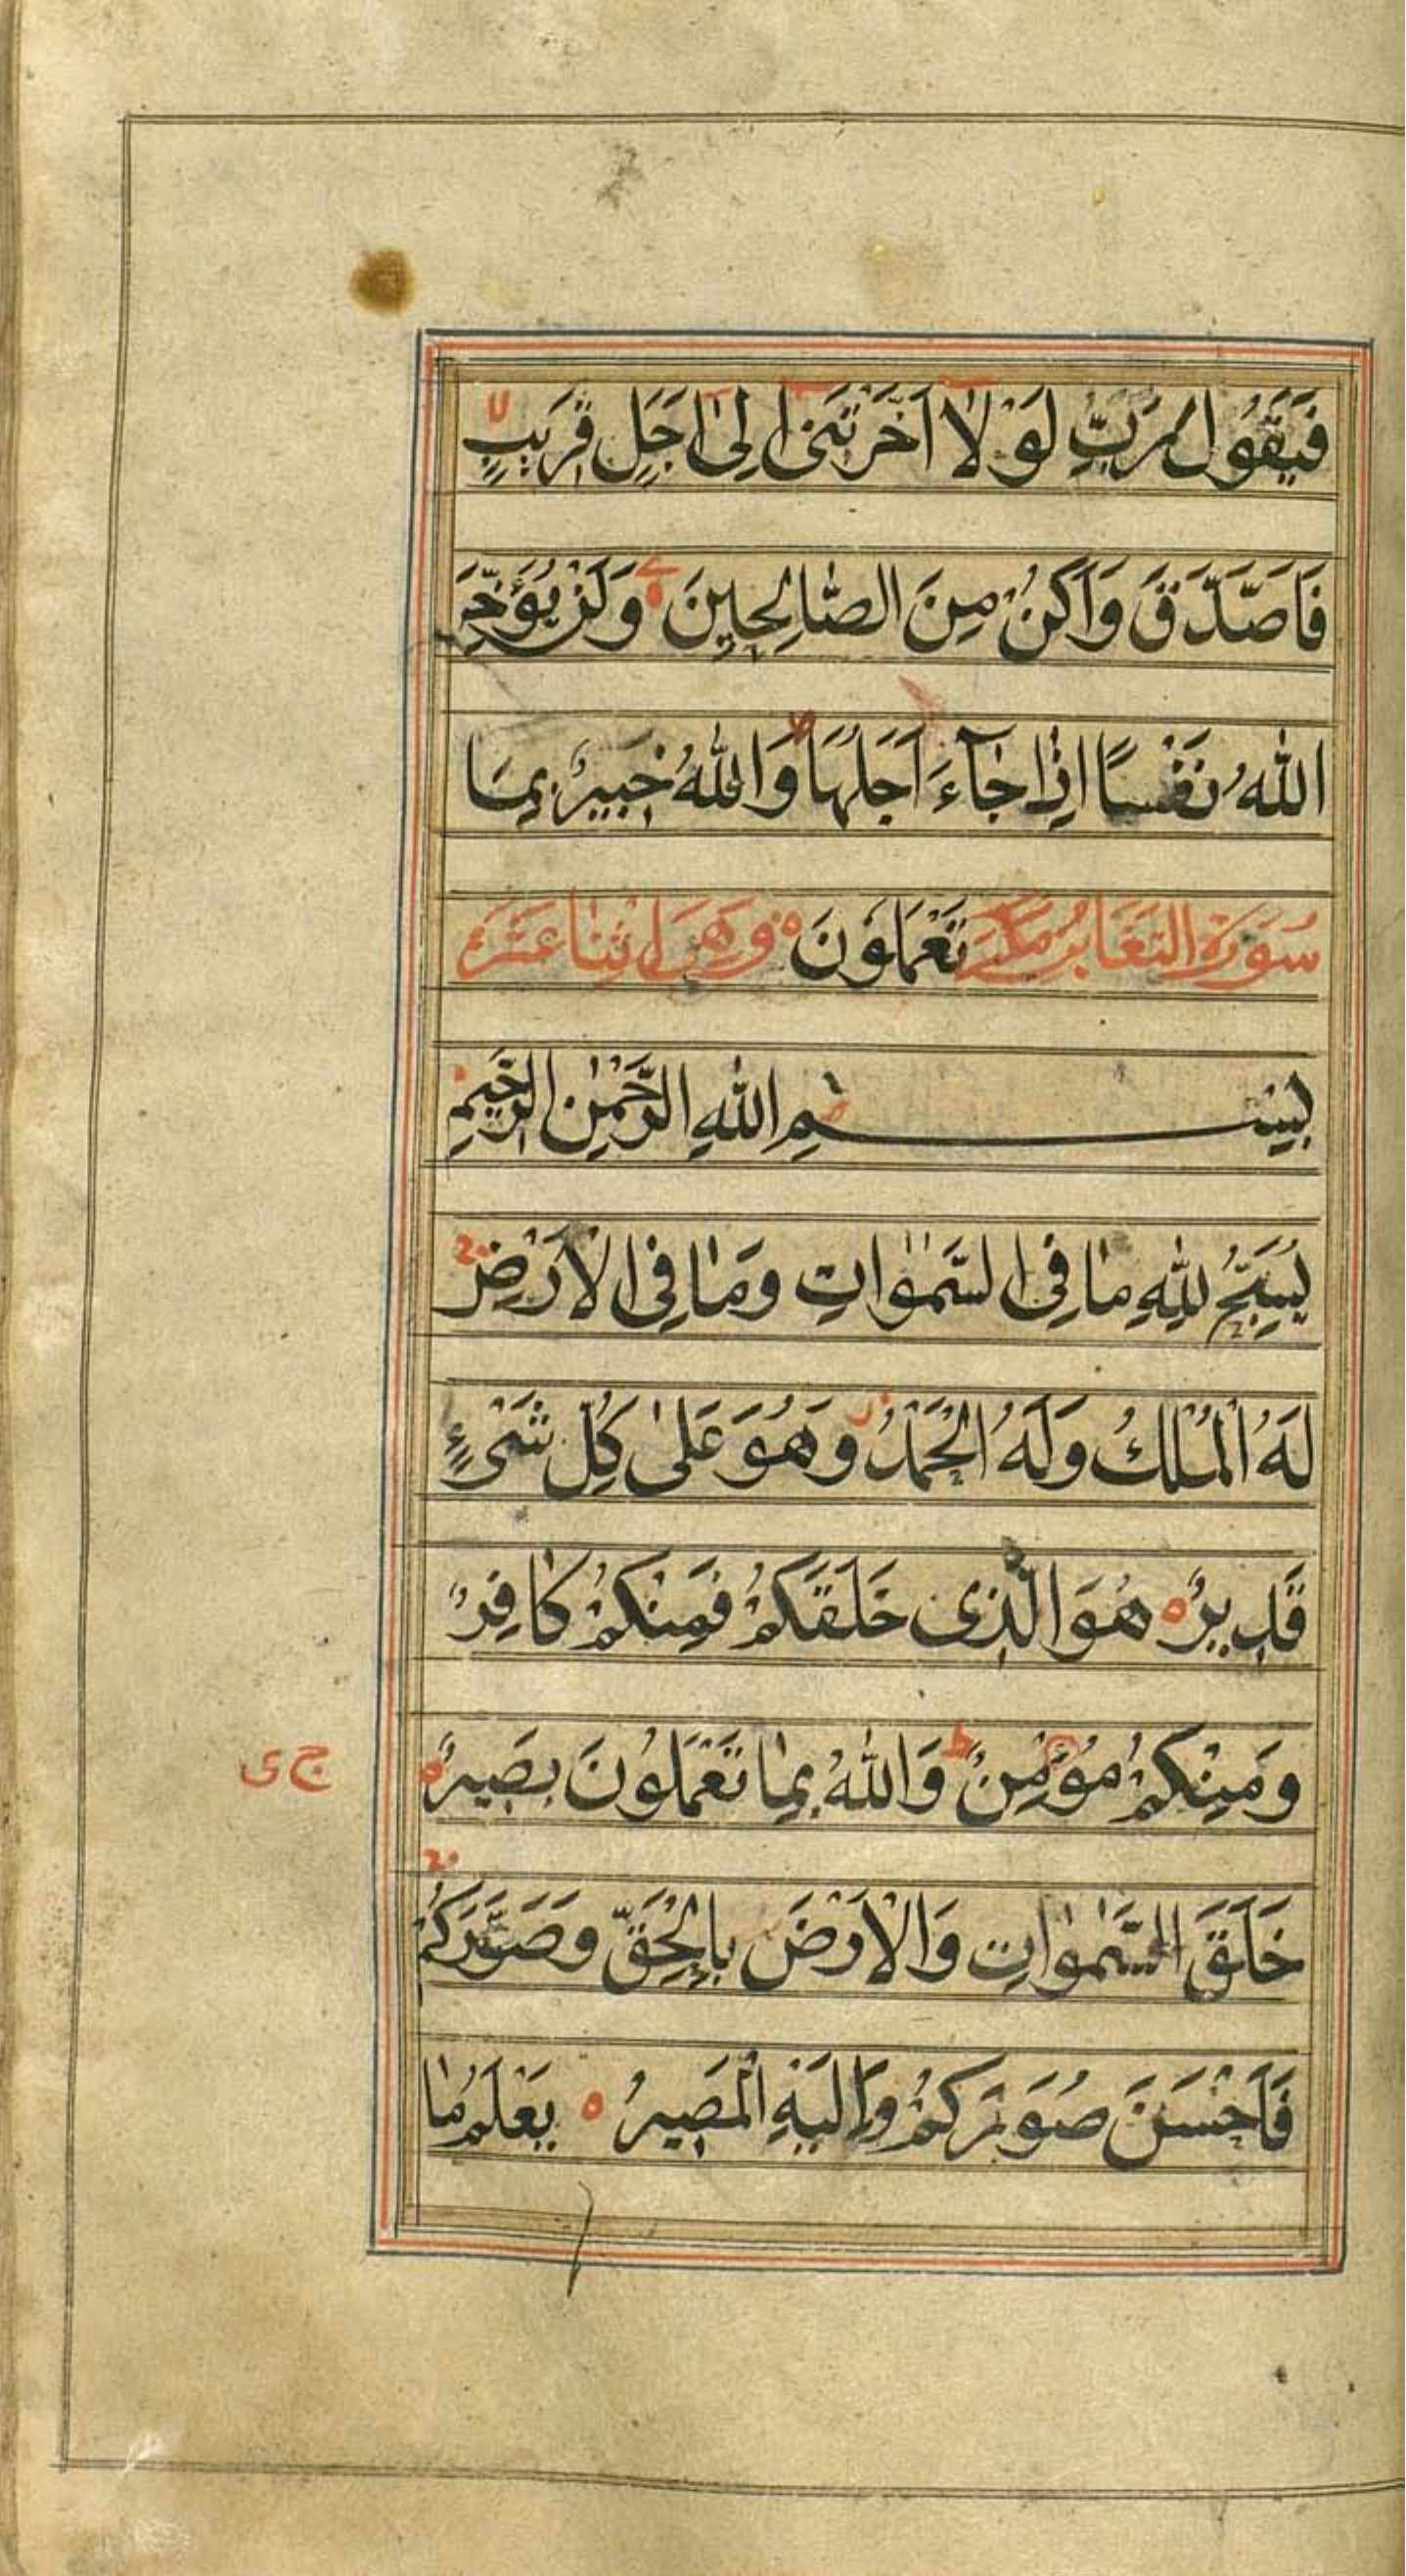 فَيَقُولَ رَبِّ لَوْلَا اَخَّرْتَنِىْ اِلىٰ اَجَلٍ قَرِيبٍ لا
فَاَصَّدَّقَ وَاَكُنْ مِنَ الصَّالِحِينَ ه وَلَنْ يُؤَخِّرَ
اللهُ نَفْسًا اِذَا جَآءَ اَجَلُهَا وَاللهُ خَبِيرٌ بِمَا
سُورَةُ التَغَابُنِ مَكّيَة تَعْمَلُونَ ه وَهِىَ اثْنَا عَشَرَ
بِسْمِ اللهِ الرَّحْمٰنِ الرَّحِيمِ
يُسَبِّحُ لِلّٰهِ مَا فِى السَّمٰوَاتِ وَمَا فِى الْاَرْضِ
لَهُ الْمُلْكُ وَلَهُ الْحَمْدُ وَهُوَ عَلىٰ كُلِّ شَىْءٍ
قَدِيرٌ ه هُوَ الَّذِى خَلَقَكُمْ فَمِنْكُمْ كَافِرٌ
وَمِنْكُمْ مُؤْمِنٌ ط وَاللهُ بِمَا تَعْمَلُونَ بَصِيرٌ ه
ج ى
خَلَقَ السَّمٰوَاتِ وَالْاَرْضَ بِالْحَقِّ وَصَوَّرَكُمْ
فَاَحْسَنَ صُوَرَكُمْ وَاِلَيْهِ الْمَصِيرُ ه يَعْلَمُ مَا